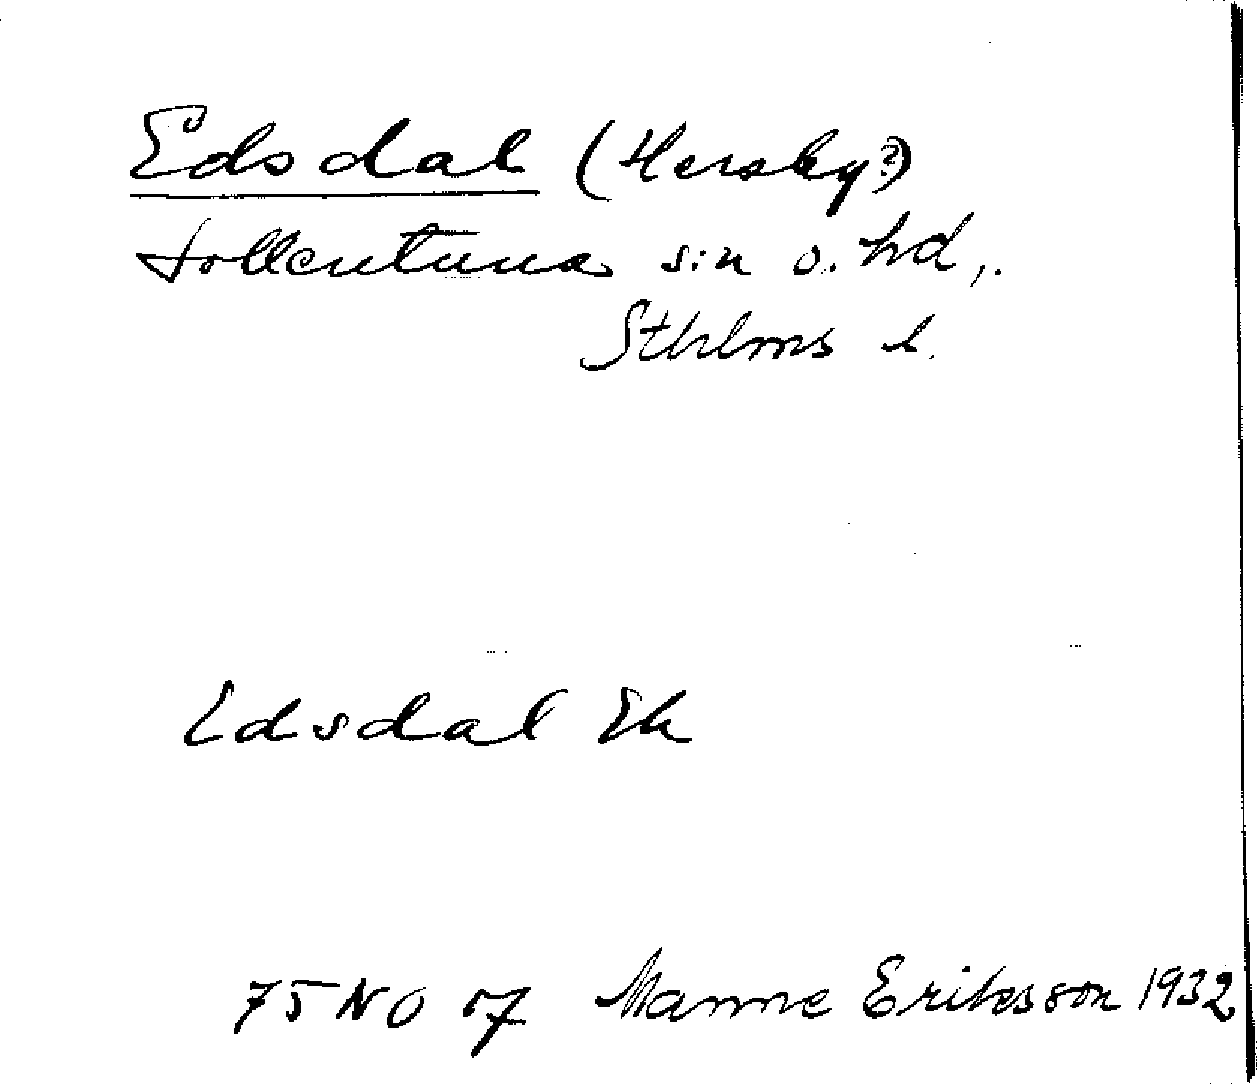 Edsdal (Hersby?)
Sollentuna sn o. hd,.
Sthlms l.
Edsdal Ek
75 NO 07 Manne Eriksson 1932